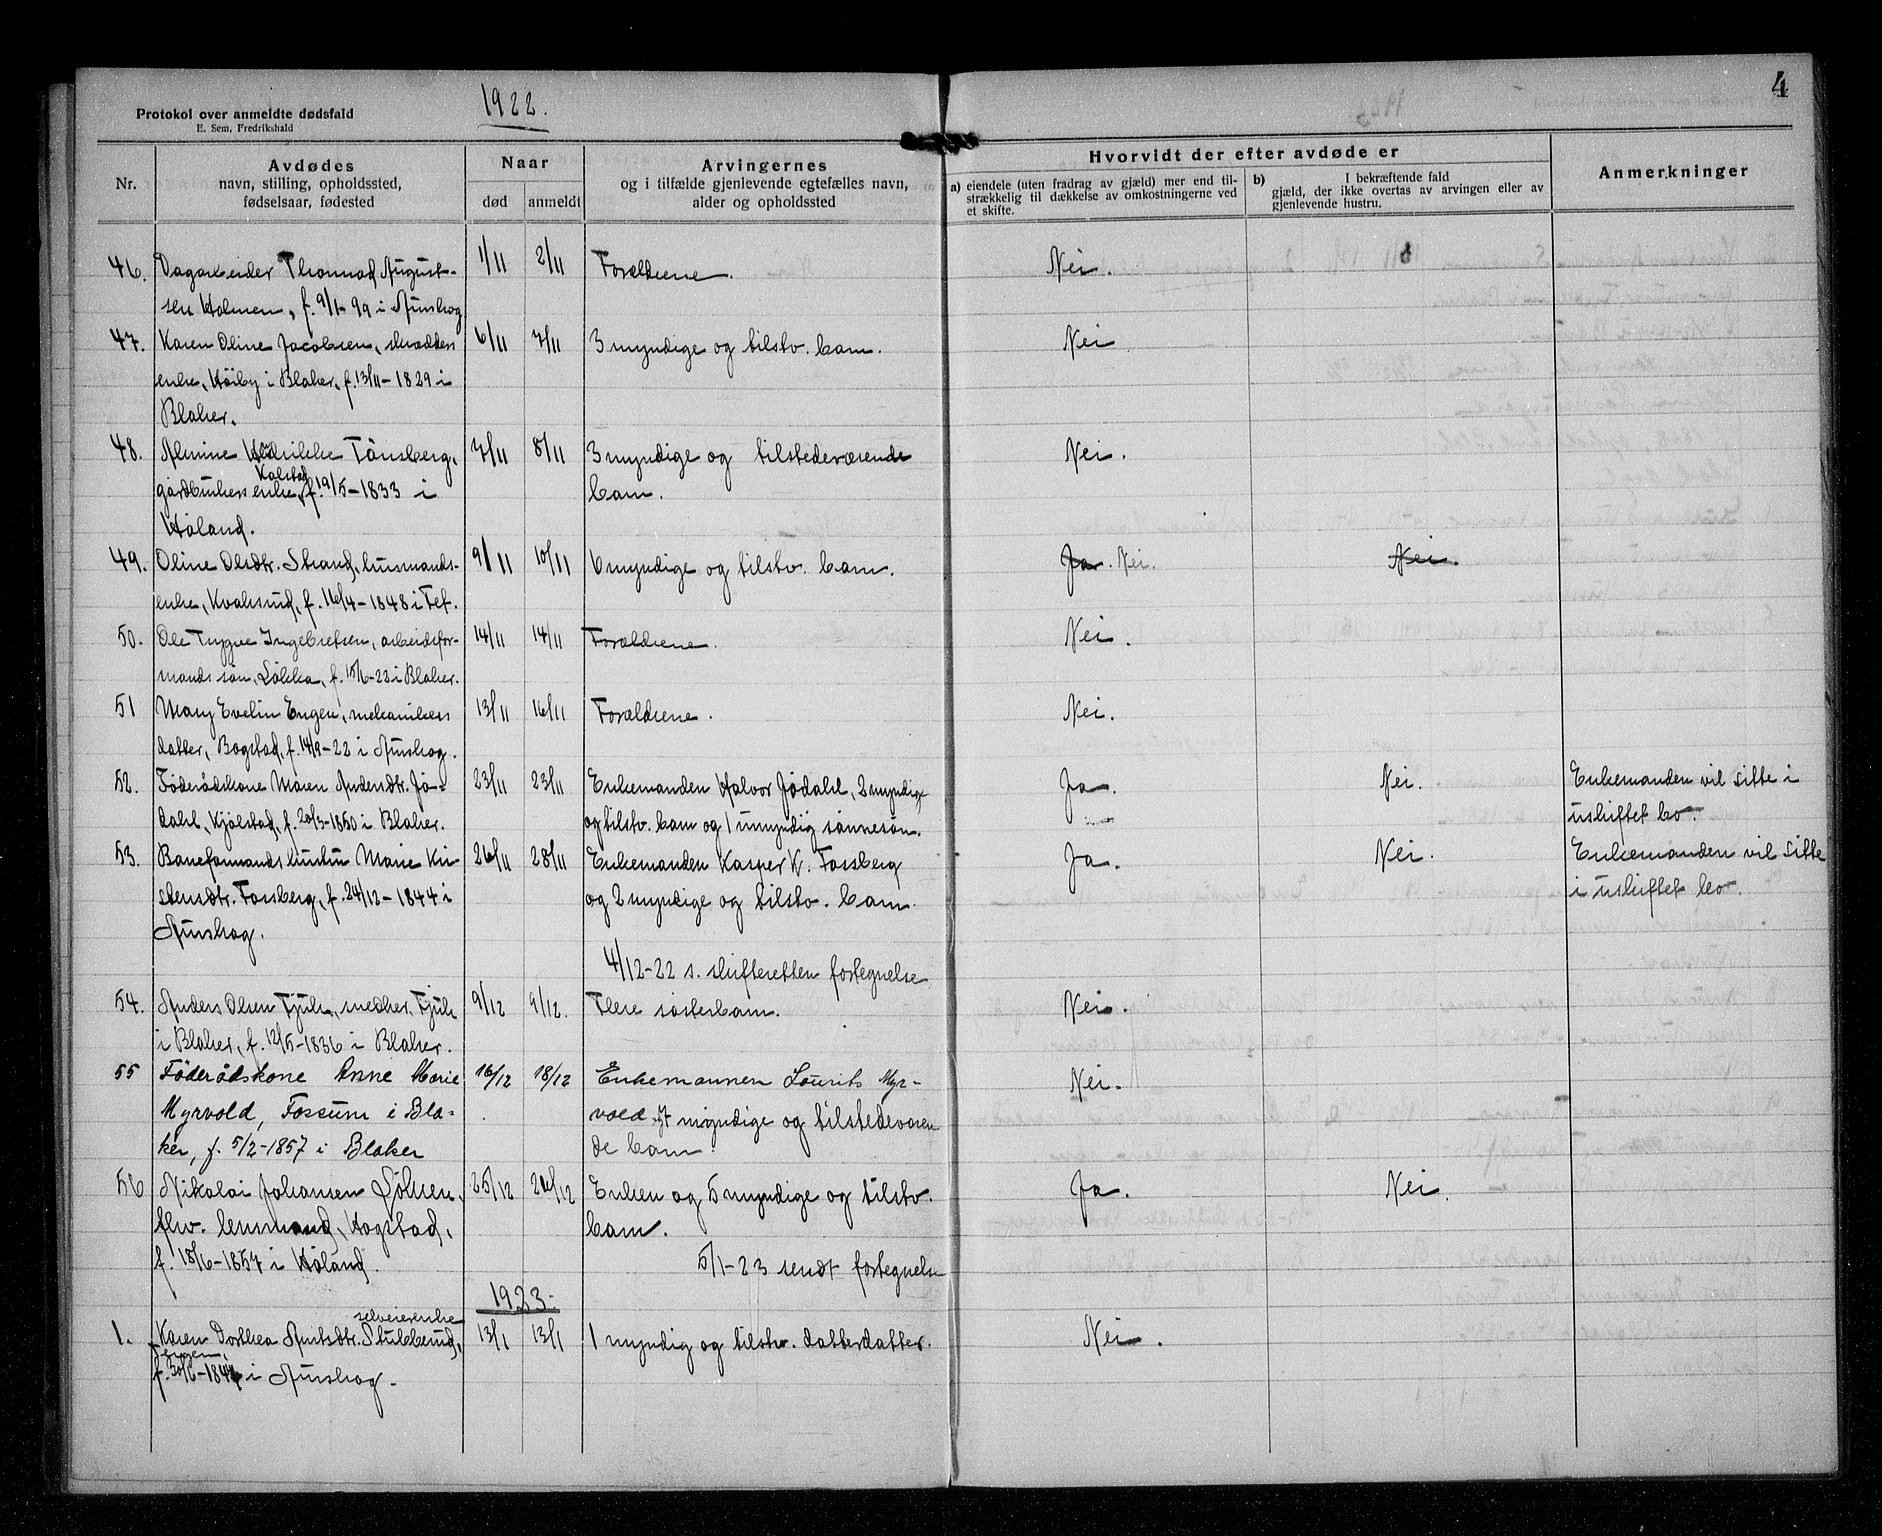 4
1922.
Protokol over anmeldte dødsfald
E. Sem, Fredrikshald
Nr.
Avdødes
navn, stilling, opholdssted,
fødselsaar, fødested
Naar
død
anmeldt
Arvingernes
og i tilfælde gjenlevende egtefælles navn,
alder og opholdssted
Hvorvidt der efter avdøde er
a) eiendele (uten fradrag av gjæld) mer end til-
strækkelig til dækkelse av omkostningerne ved
et skifte.
b) I bekræftende fald
gjæld, der ikke overtas av arvingen eller av
gjenlevende hustru.
Anmerkninger
46. Dagarbeider Thomas August- 1/11 2/11 Forældrene. Nei.
sen Holmen, f. 9/1-99 i Aurskog
47. Karen Oline Jacobsen, skrædders 6/11 7/11 3 myndige og tilstv. barn. Nei
enke, Høiby i Blaker, f. 13/11-1829 i
Blaker.
48. Helvikke Tønsberg, 7/11 8/11 3 myndige og tilstedeværende Nei.
Kolstad
gårdbrukers enke, f. 19/5-1833 i barn.
Høland.
49. Oline Olsdtr. Strand, husmands- 9/11 10/11 6 myndige og tilstv. barn. Ja. Nei. Nei.
enke, Kvaksrud, f. 16/4-1848 i Fet.
50. Ole Trygve Ingebretsen, arbeidsfor- 14/11 14/11 Forældrene. Nei.
mands søn, Løkka, f. 15/6-22 i Blaker.
51 Mary Evelin Engen, mekanikers 13/11 16/11 Forældrene. Nei.
datter, Bogstad, f. 14/9-22 i Aurskog.
52. Føderådskone Maren Andersdtr. Jø- 23/11 23/11 Enkemanden Halvor Jødahl, 2 myndige Ja. Nei. Enkemanden vil sitte i
dahl, Kjølstad, f. 20/3-1850 i Blaker. og tilstv. barn og 1 umyndig sønnesøn. uskiftet bo.
53. Baneformands hustru Marie Kri- 26/11 28/11 Enkemanden Kasper K. Fossberg Ja. Nei. Enkemanden vil sitte
stensdtr. Fossberg, f. 24/12-1844 i og 2 myndige og tilstv. barn. i uskiftet bo.
Aurskog.
4/12-22 s. skifteretten fortegnelse
54. Anders Olsen Fjuk, snedker, Fjuk 9/12 9/12. Flere søsterbarn. Nei.
i Blaker, f. 12/5-1836 i Blaker.
55 Føderådskone Anne Marie 16/12 18/12 Enkemannen Lourits Myr- Nei.
Myrvold, Fossum i Bla- vold myndige og tilstedeværen
ker, f. 5/2-1857 i Blaker de barn
56 Nikolai Johansen Løken, 25/12 26/12 Enken og 5 myndige og tilstv. Ja. Nei.
fhv. lensmand, Hogstad, barn.
f. 18/6-1857 i Høland.
5/1-23 sendt fortegnelse
1923.
selveierenke
1. Karen Dorthea Amtsdtr. Stulkerud, 13/1 13/1 1 myndig og tilstv. datterdatter. Nei.
f. 30/6-1844 i Aurskog.